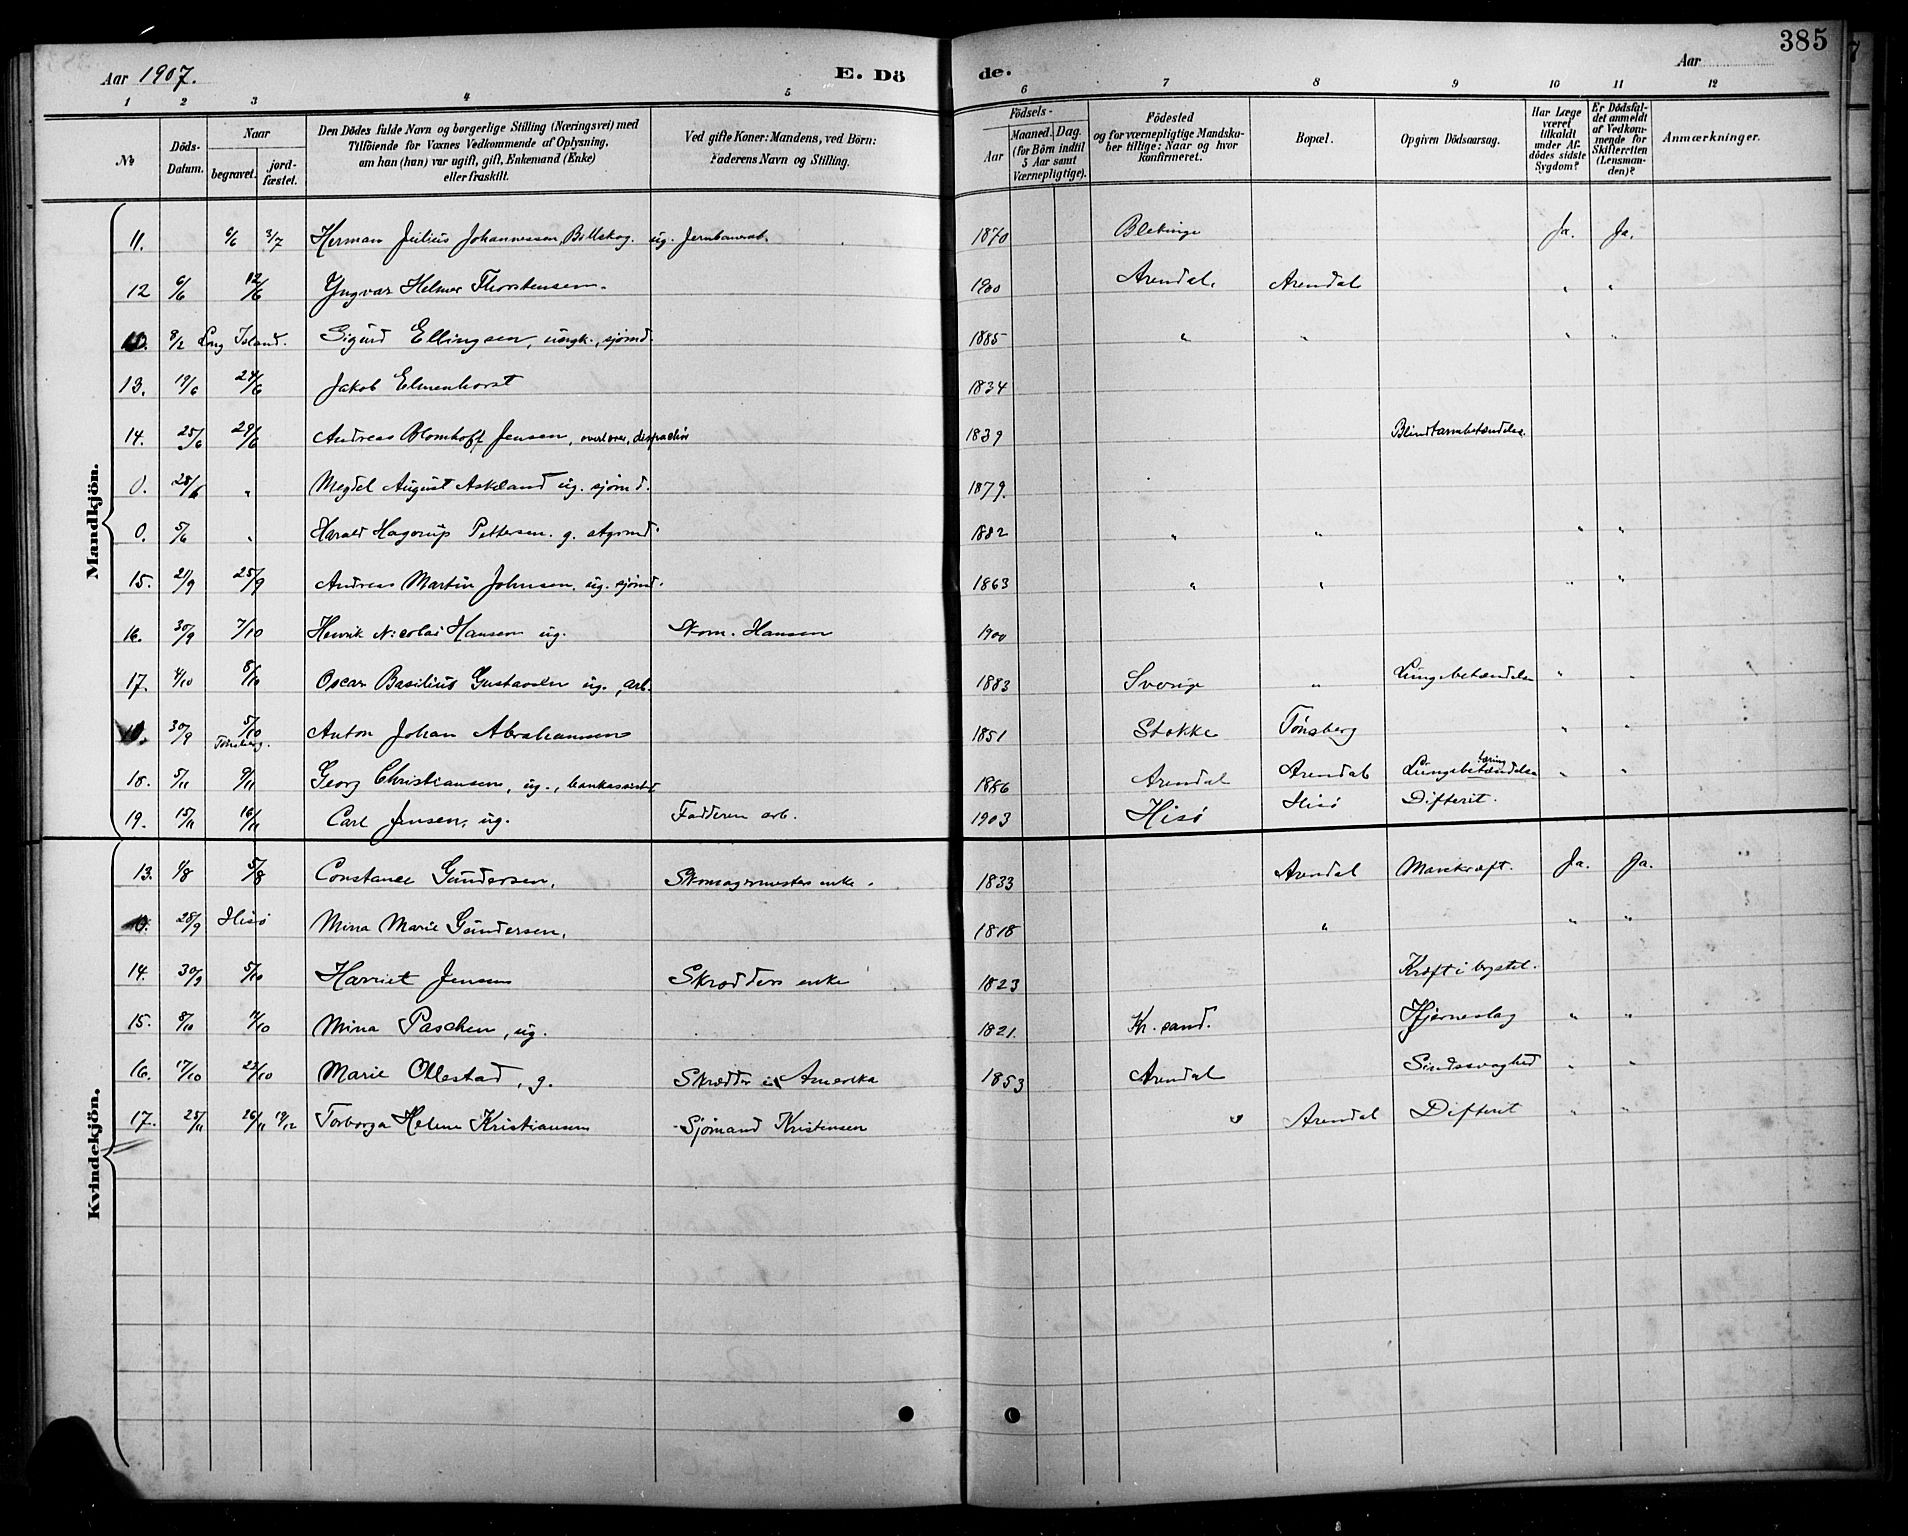 385
Aar 1907.
E. Dö
de.
Aar
1 2 3 4 5 6 7 8 9 10 11 12
No
Döds-Datum.
Naar
begravet.
jord-fæstet.
Den Dödes fulde Navn og borgerlige Stilling (Næringsvei) med
Tilföiende for Voxnes Vedkommende af Oplysning,
om han (hun) var ugift, gift, Enkemand (Enke)
eller fraskilt.
Ved gifte Koner: Mandens, ved Börn:
Faderens Navn og Stilling.
Födsels-
Aar
Maaned. Dag.
(for Börn indtil
5 Aar samt
Værnepligtige).
Födested
og for værnepligtige Mandsku-
ber tillige: Naar og hvor
konfirmeret.
Bopæl.
Opgiven Dödsaarsag.
Har Læge
været
tilkaldt
under Af-
dödes sidste
Sygdom?
Er Dödsfal-
det anmeldt
af Vedkom-
mende for
Skifteretten
(Lensman-
den)?
Anmærkninger.
Mandkjön.
11. 6/6 3/7 Herman Julius Johannessen Billskog. ug. Jernbanearb. 1870 Blekinge Ja. Ja.
12 6/6 12/6 Yngvar Helmer Thorstensen. 1900 Arendal. Arendal " "
0. 8/2 Long Island. Sigurd Ellingsen, ungk., sjømd. 1885 " " " "
13. 19/6 24/6 Jakob Elmenhorst 1834
14. 25/6 29/6 Andreas Blomhoff Jensen, overlærer, dispachør 1839 Blindtarmbetændelse.
0. 28/6 " Megdel August Askeland ug. sjømd. 1879.
0. 5/6 " Harald Hagerup Pettersen. g. styrmd. 1882 " " " "
15. 21/9 25/9 Andreas Martin Johnsen, ug. sjømd. 1863 " " " "
16. 30/9 7/10 Henrik Nicolai Hansen ug. Skom. Hansen 1900
17. 4/10 8/10 Oscar Basilius Gustavsen ug., arb. 1883 Sverige " Lungebetændelse " "
0. 30/9 5/10 Tønsberg. Anton Johan Abrahamsen 1851 Stokke Tønsberg " "
18. 5/11 9/11 Georg Christiansen, ug., bankassistent 1886 Arendal Arendal Lungebetændelse tæring " "
19. 15/11 16/11 Carl Jensen, ug. Fadderen arb. 1903 Hisø Hisø Difterit.
Kvindekjön.
13. 1/8 5/8 Constance Gundersen. Skomagermesters enke. 1833 Arendal Mavekræft. Ja. Ja.
0. 28/9 Hisø Mina Marie Gundersen. 1818 " " "
14. 30/9 5/10 Harriet Jensen Skrædders enke 1823 Kræft i brystet.
15. 8/10 11/10 Mina Paschen, ug. 1821. Kr. sand. Hjerneslag " "
16. 17/10 22/10 Marie Ollestad, g. Skrædder i Amerika 1853 Arendal Sindssvaghed " "
17. 25/11 26/11 19/12 Torborga Helene Kristiansen Sjømand Kristensen " Arendal Difterit " "